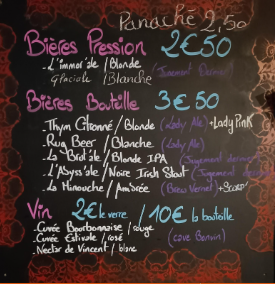 Panaché 2,50
Bières Pression 2€50
- L'immor'ale / Blonde
Glaciale / Blanche (Jugement Dernier)
Bières Bouteille 3€50
- Thym Citronné / Blonde (Lady Ale) + Lady Pink
- Rug Beer / Blanche (Lady Ale)
- La Brut'ale / Blonde IPA (Jugement dernier)
- L'Abyss'ale / Noire Irish Stout (Jugement dernier)
- La Minouche / Ambrée (Brew Vernet)
Vin 2€ le verre / 10€ la bouteille
- Cuvée Bourbonnaise / rouge
- Cuvée Estivale / rosé (cave Bonvin)
- Nectar de Vincent / blanc